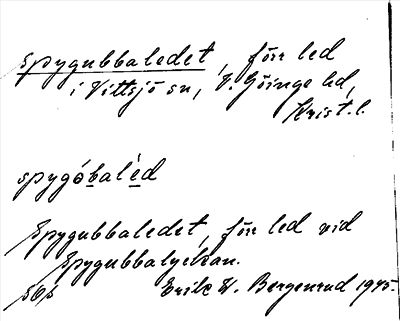 Spygubbaledet, förr led
i Vittsjö sn, V. Göinge hd,
Krist. l.
spygóbaléd
Spygubbaledet, förr led vid
Spygubbalyckan.
Erik W. Bergenrud 1945.